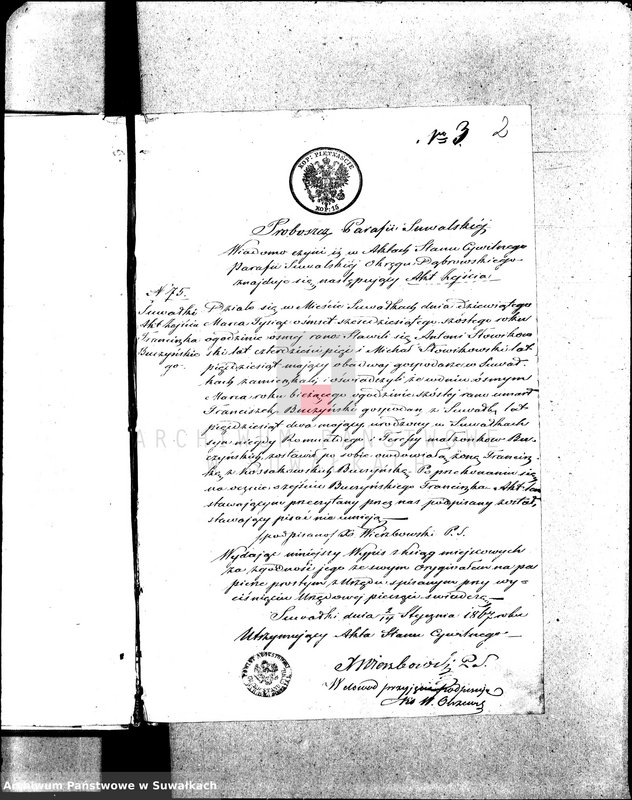 Nro 3. 2
KOP: PIĘTNAŚCIE
KOP: 15
Proboszcz Parafii Suwalskiéj
Wiadomo czyni iż w Aktach Stanu Cywilnego
Parafii Suwalskiéj Okręgu Dąbrowskiego
znajduje się następujący Akt Zejścia.
N 75.
Suwałki
Akt Zejścia
Franciszka
Buczyńskie
go.
Działo się w Mieście Suwałkach dnia dziewiątego
Marca Tysiąc ośmset sześćdziesiątego szóstego roku
o godzinie osmej rano Stawili się Antoni Słowikow
ski lat czterdzieści pięć i Michał Słowikowski lat
pięćdziesiąt mający obadwaj gospodarze w Suwał
kach zamieszkali i oświadczyli że w dniu osmym
Marca roku bieżącego o godzinie szóstej rano umarł
Franciszek Buczyński gospodarz z Suwałk lat
pięćdziesiąt dwa mający urodzony w Suwałkach
syn niegdy Romualdego i Teresy małżonków Bu-
czyńskich, zostawił po sobie owdowiałą żonę Francisz-
kę z Kossakowskich Buczyńską. Po przekonaniu się
na ocznie o zejściu Buczyńskiego Franciszka Akt ten
stawającym przeczytany przez nas podpisany został,
stawający pisać nie umieją
/podpisano/ Xs Wierzbowski P. S.
Wydając niniejszy Wypis z ksiąg miejscowych
za zgodność jego ze swym Oryginałem na pa
pierze prostym z Urzędu spisanym przy wy-
ciśnięciu Urzędowej pieczęci świadczę
Suwałki dnia 2/14 Stycznia 1867 roku
Utrzymujący Akta Stanu Cywilnego.
X Wierzbowski P. S.
W dowód przyjęcia Podpisuje
Archiwum Państwowe w Suwałkach